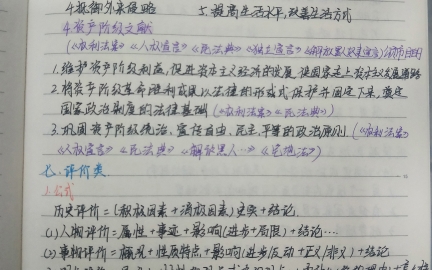 4.抵御外来侵略 5.提高生活水平,改善生活方式
4.资产阶级文献
(《权利法案》《人权宣言》《民法典》《独立宣言》《解放黑人奴隶宣言》
1.维护资产阶级利益,促进资本主义经济的发展,使国家走上资本主义道路
2.将资产阶级革命胜利成果以法律的形式式保护并固定下来,奠定
国家政治制度的法律基础(《权利法案》)
3.巩固资产阶级统治,宣传自由、民主、平等的政治原则(《权利法案》
《人权宣言》《民法典》《解放黑人…》《宅地法》)
七.评价类
历史评价=(积极因素+消极因素)史实+结论.
(1)人物评价=属性+事迹+影响(进步+局限)+结论…
(2)事物评价=概况+性质特点+影响(进步/反动+正义/非义)+结论